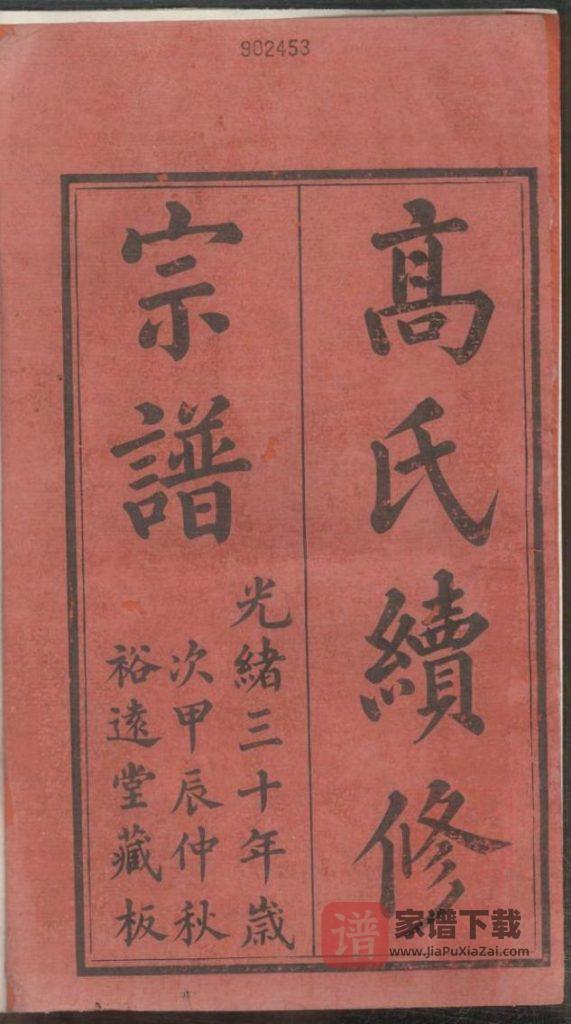 902453
髙氏續修
宗譜
光緒三十年歲
次甲辰仲秋
裕遠堂藏板
谱
家谱下载
www.JiaPuXiaZai.com